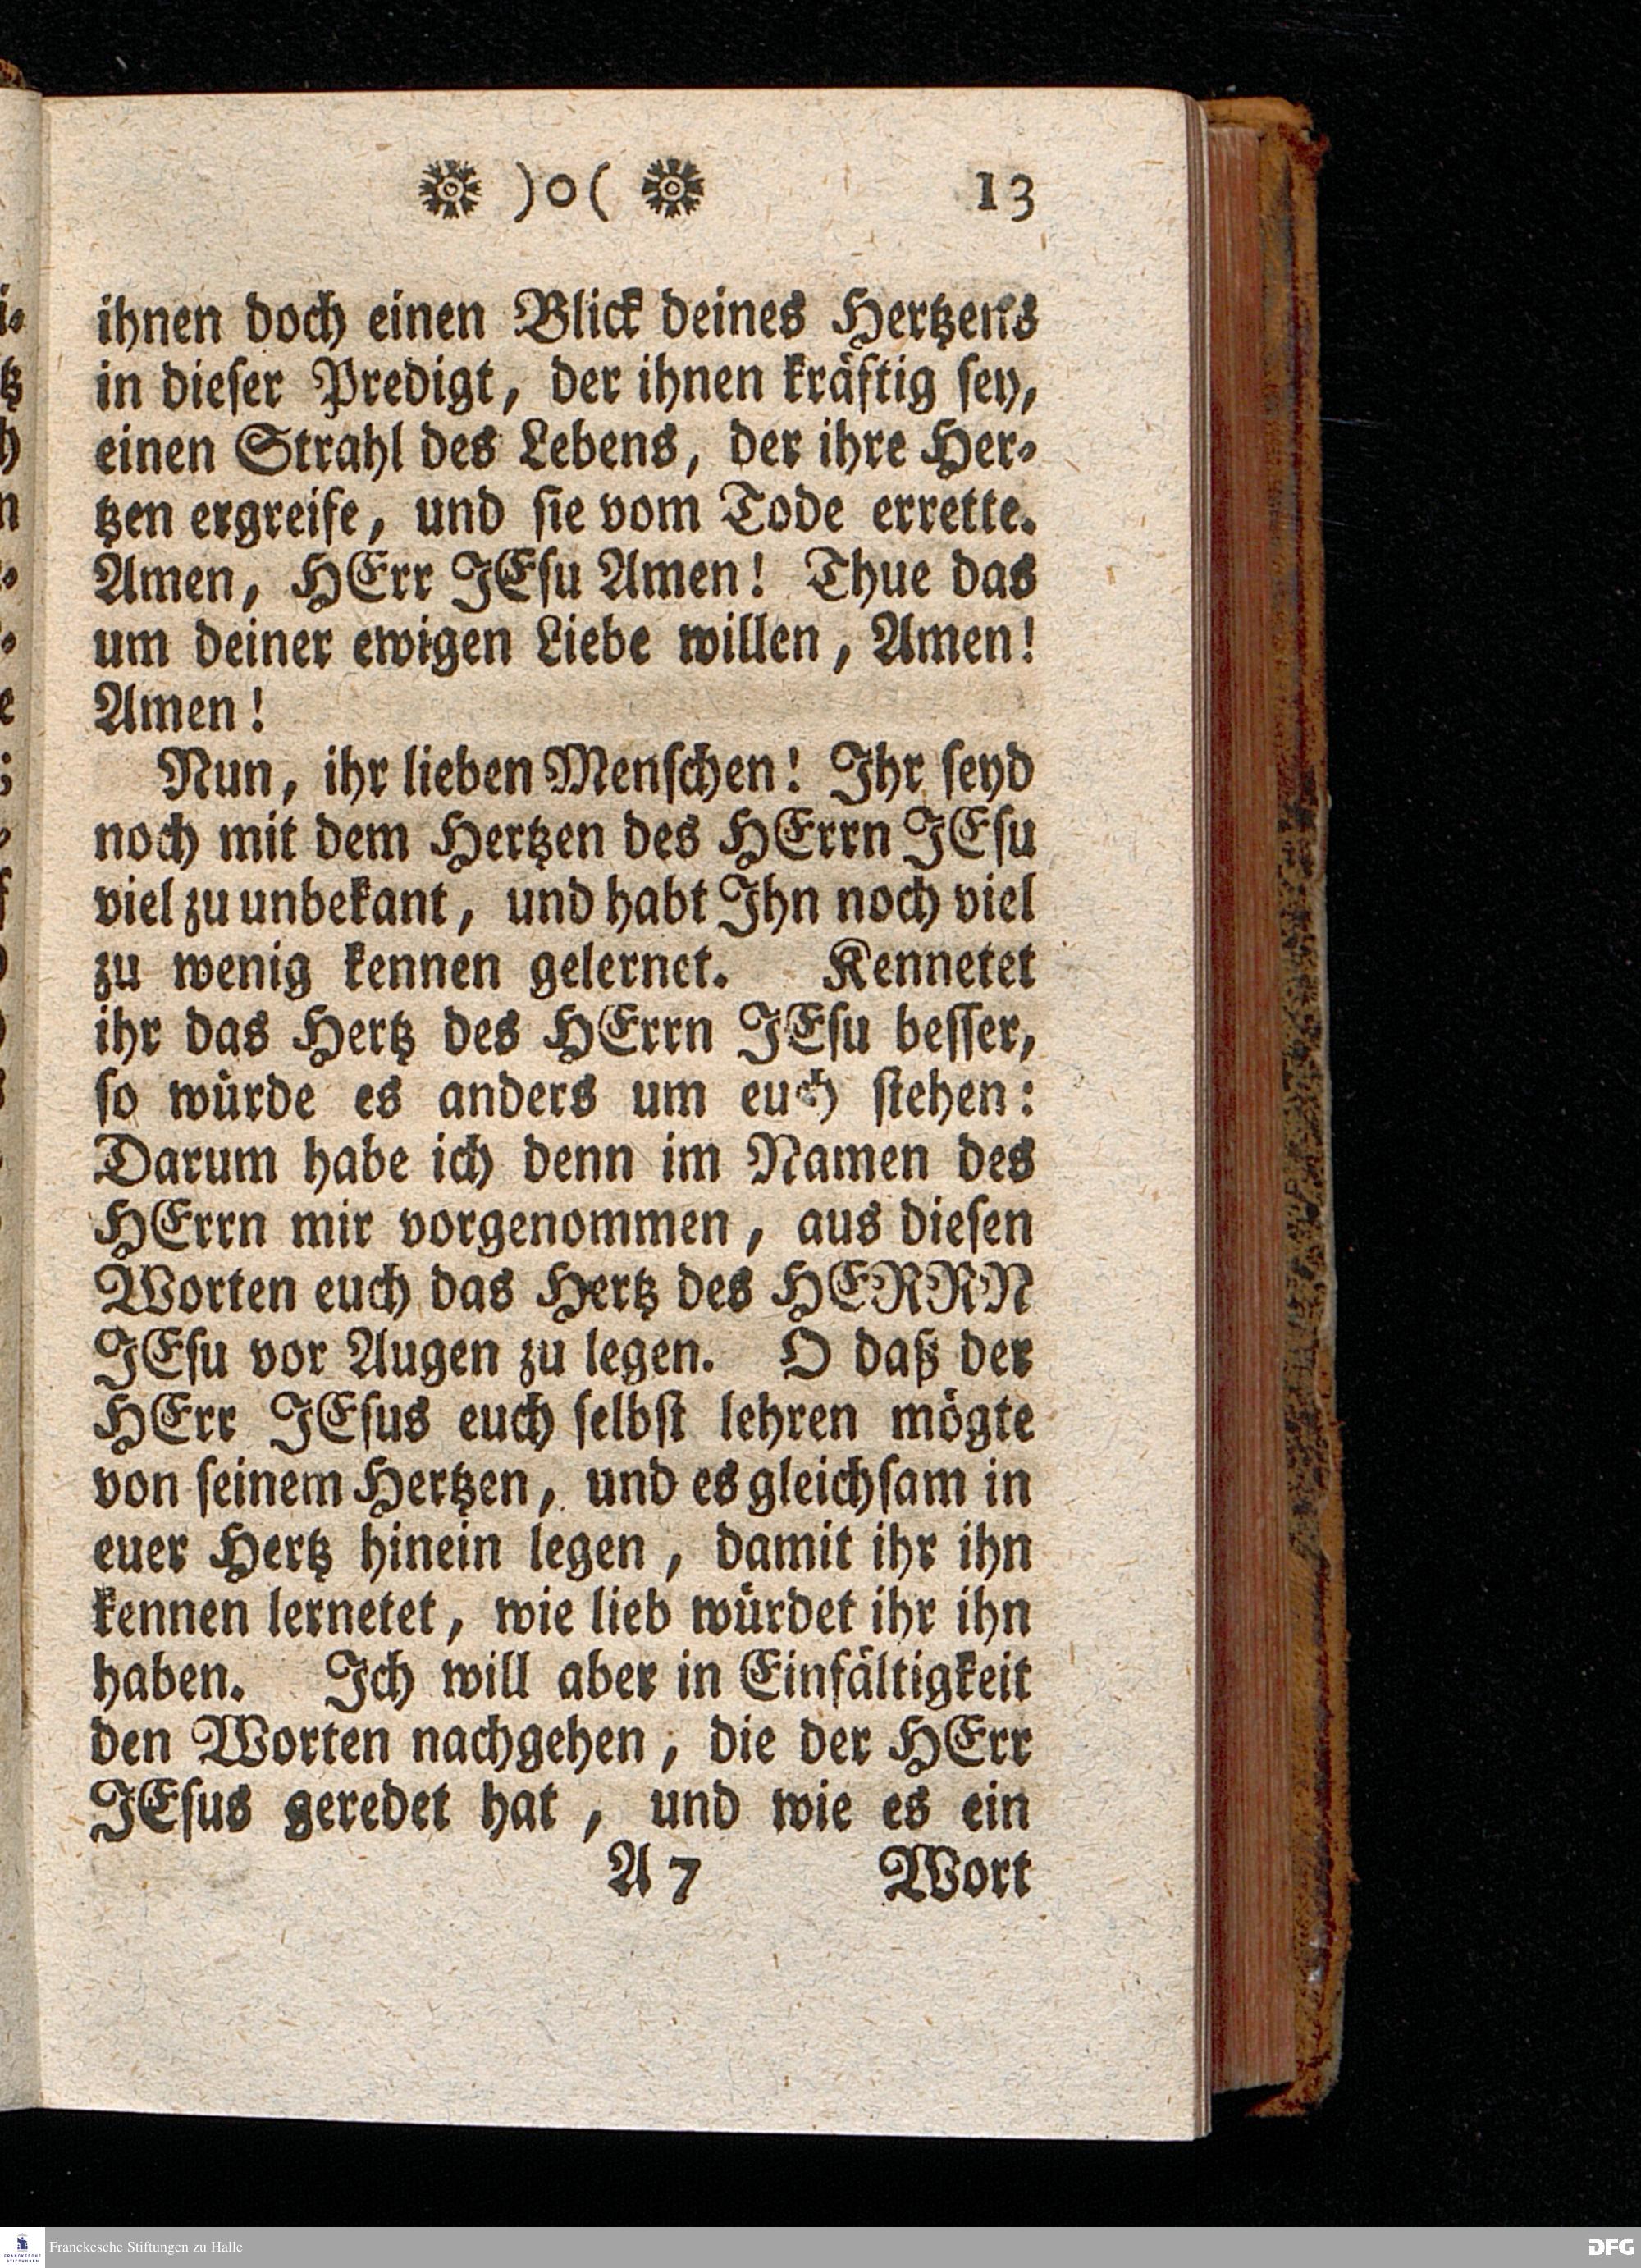 )o( 13
ihnen doch einen Blick deines Hertzens
in dieſer Predigt, der ihnen kräftig ſey,
einen Strahl des Lebens, der ihre Her⸗
tzen ergreife, und ſie vom Tode errette.
Amen, HErr JEſu Amen! Thue das
um deiner ewigen Liebe willen, Amen!
Amen!
Nun, ihr lieben Menſchen! Ihr ſeyd
noch mit dem Hertzen des HErrn JEſu
viel zu unbekant, und habt Ihn noch viel
zu wenig kennen gelernet. Kennetet
ihr das Hertz des HErrn JEſu beſſer,
ſo würde es anders um euch ſtehen:
Darum habe ich denn im Namen des
HErrn mir vorgenommen, aus dieſen
Worten euch das Hertz des HERRN
JEſu vor Augen zu legen. O daß der
HErr JEſus euch ſelbſt lehren mögte
von ſeinem Hertzen, und es gleichſam in
euer Hertz hinein legen, damit ihr ihn
kennen lernetet, wie lieb würdet ihr ihn
haben. Ich will aber in Einfältigkeit
den Worten nachgehen, die der HErr
JEſus geredet hat, und wie es ein
A 7 Wort
Franckesche Stiftungen zu Halle
FRANCKESCHE
STIFTUNGEN
DFG